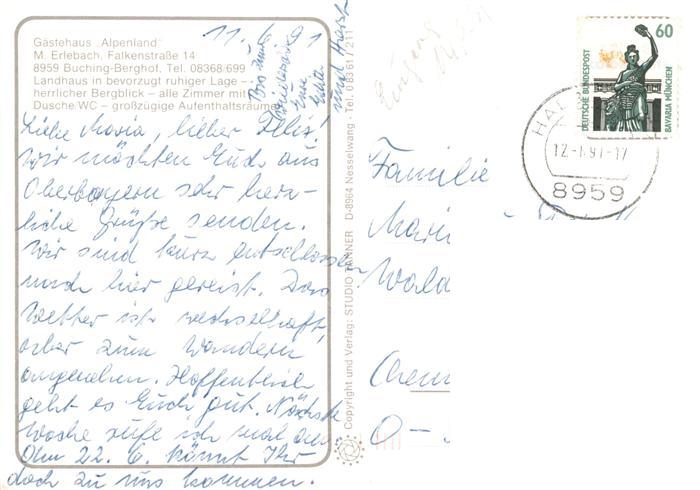 11.6.91
Gästehaus „Alpenland"
M. Erlebach, Falkenstraße 14
8959 Buching-Berghof, Tel. 08368/699
Landhaus in bevorzugt ruhiger Lage –
herrlicher Bergblick – alle Zimmer mit
Dusche/WC – großzügige Aufenthaltsräume
Liebe Maria, lieber Felix!
Wir möchten Euch aus
Oberbayern sehr herz-
liche Grüße senden.
Wir sind kurz entschlossen
nach hier gereist. Das
Wetter ist wechselhaft,
aber zum Wandern
angenehm. Hoffentlich
geht es Euch gut. Nächste
Woche rufe ich mal an.
Am 22. 6. könnt Ihr
doch zu uns kommen.
Bis dann
Eure
und Horst
Copyright und Verlag: STUDIO TANNER D-8964 Nesselwang · Tel. 08361/7211
Eingang
60
DEUTSCHE BUNDESPOST
BAVARIA MÜNCHEN
HAL
12.-6.91-17
8959
Familie
Mari
Wald
Chem
O-